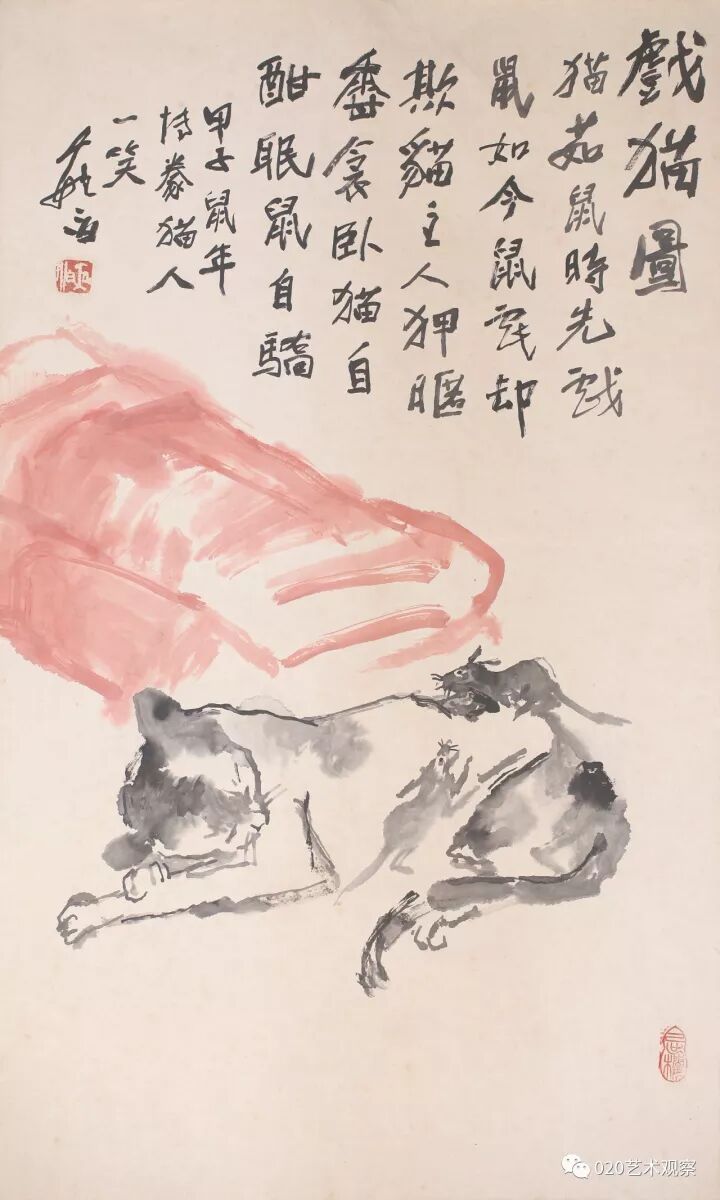 戲猫圖
猫茹鼠時先戲
鼠如今鼠戲却
欺貓主人狎暱
香衾卧猫自
酣眠鼠自驕
甲子鼠年
博豢猫人
一笑
020艺术观察